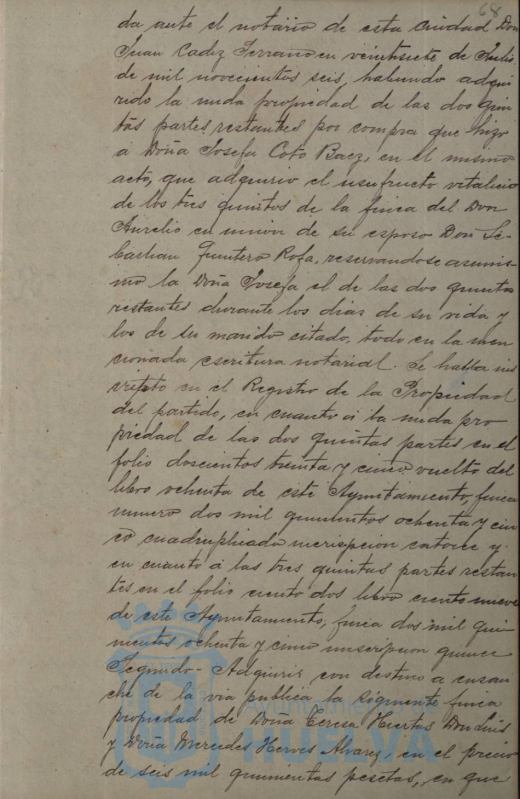 68
da ante el notario de esta ciudad Don
Juan Cadiz Serrano en veintisiete de Julio
de mil novecientos seis, habiendo adqui
rido la nuda propiedad de las dos quin
tas partes restantes por compra que hizo
á Doña Josefa Coto Baez, en el mismo
acto, que adquirio el usufructo vitalicio
de los tres quintos de la finca del Don
Aurelio en union de su esposo Don Se-
bastian Quintero Rofa, reservandose asimis-
mo la Doña Josefa el de las dos quintas
restantes durante los dias de su vida y
los de su marido citado, todo en la men
cionada escritura notarial. Se halla ins
cripto en el Registro de la Propiedad
del partido, en cuanto á la nuda pro
piedad de las dos quintas partes en el
folio doscientos treinta y cinco vuelto del
libro ochenta de este Ayuntamiento, finca
numero dos mil quinientos ochenta y cin
co cuadruplicado inscripcion catorce y
en cuanto á las tres quintas partes restan
tes en el folio ciento dos libro ciento nueve
de este Ayuntamiento, finca dos mil qui
nientos ochenta y cinco inscripcion quince
Segundo - Adquirir con destino a ensan
che de la via publica la siguiente finca
propiedad de Doña Teresa Huertas
y Doña Mercedes Hervés Alvarez, en el precio
de seis mil quinientas pesetas, en que
Ayuntamiento
HUELVA